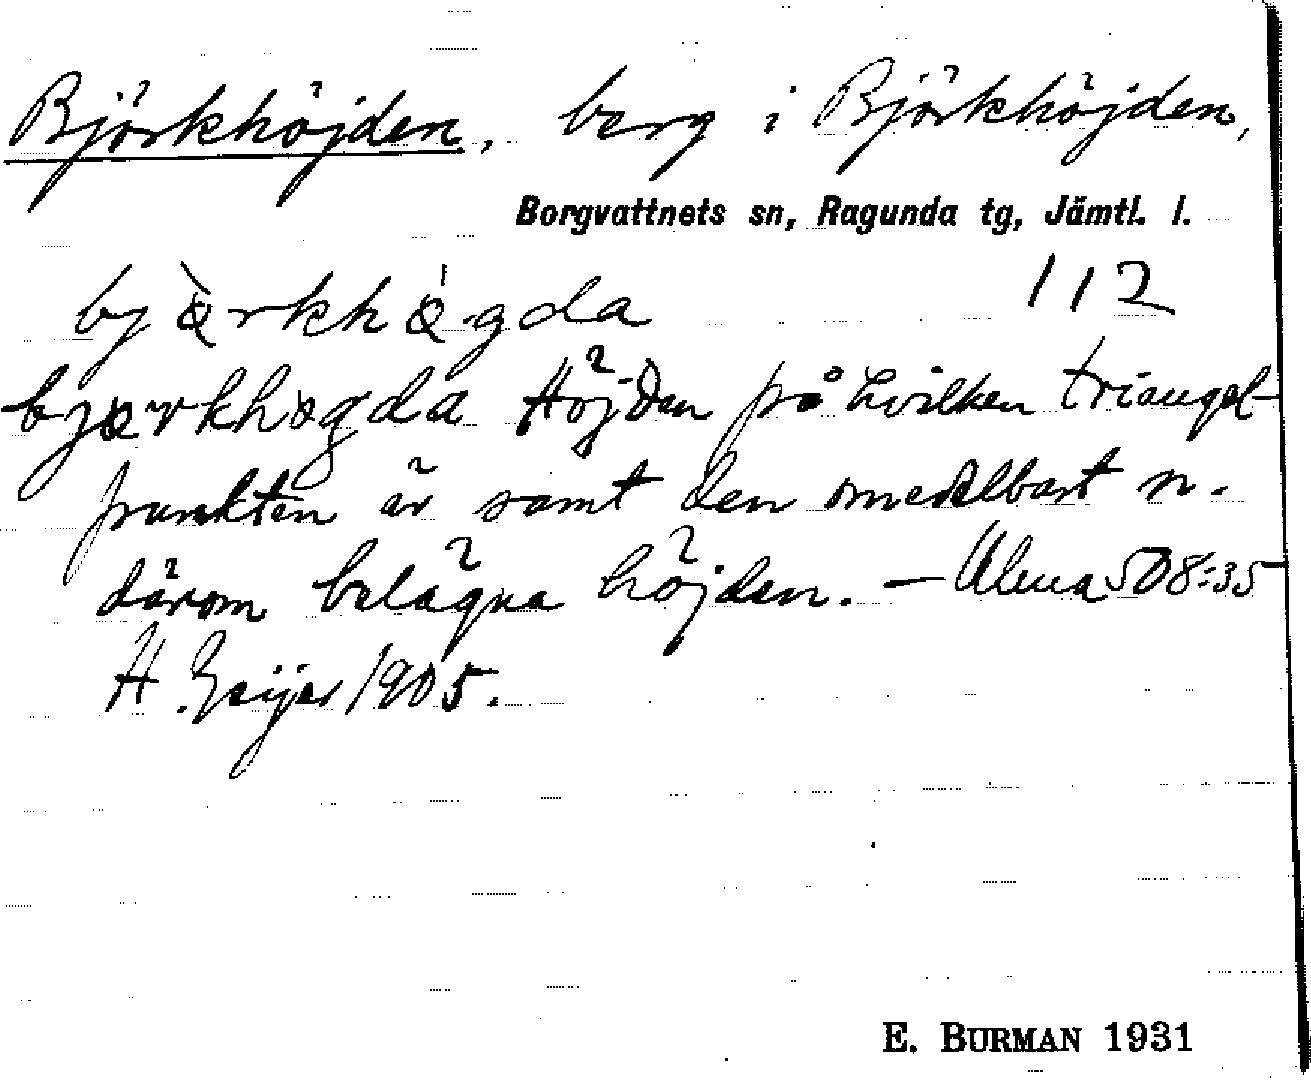 Björkhöjden, berg i Björkhöjden,
Borgvattnets sn, Ragunda tg, Jämtl. l.
112
Höjden på hvilken triangel-
punkten är samt den omedelbart n.
därom belägna höjden. —
H. Geijer 1905.
E. BURMAN 1931